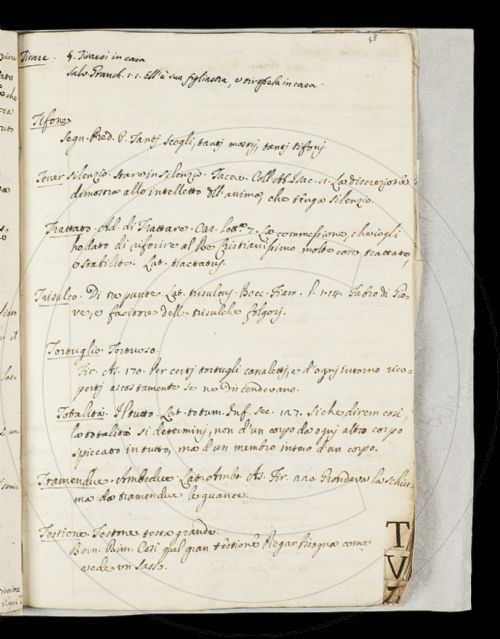 45
Tirare. §. Tirarsi in casa
Salv. Granch. 1. 1. Ell' è sua figliastra, e tiratela in casa.
Tifone
Segn. Pred. 8. Tanti scogli, tanti mostri, tanti tifoni
Tener silenzio. Stare in silenzio. Tacere. Coll. Ab. Isac. 11. La discrezione
dimostra allo intelletto dell' anima, che tenga silenzio.
Trattato. Ad. di Trattare. Cas. Lett. 7. La commessione, che io gli
ho dato di riferire al Re Cristianissimo molte cose trattate,
e stabilite. Lat. tractatus.
Trisulco. Di tre punte. Lat. trisulcus. Bocc. Fiam. l. 1. 14. Fabro di Gio-
ve, e facitore delle trisulche folgori.
Tortuglio. Tortuoso.
Fir. As. 170. Per certi tortugli canaletti, e d' ogni intorno rico-
perti ascostamente se ne discendevano.
Totalità. Il tutto. Lat. totum. Inf. sec. 127. Sicchè direm così,
la totalità si determini, non d' un corpo da ogni altro corpo
spiccato in tutto, ma d' un membro intero d' un corpo.
Tramendue. Ambedue. Lat. Ambo. As. Fir. 220. Grondava la schiu-
ma da tramendue le guance.
Testione. Testone testa grande.
Bern. Rim. Così quel gran testione piegar bisogna come
vede un sasso.
T
V
Z